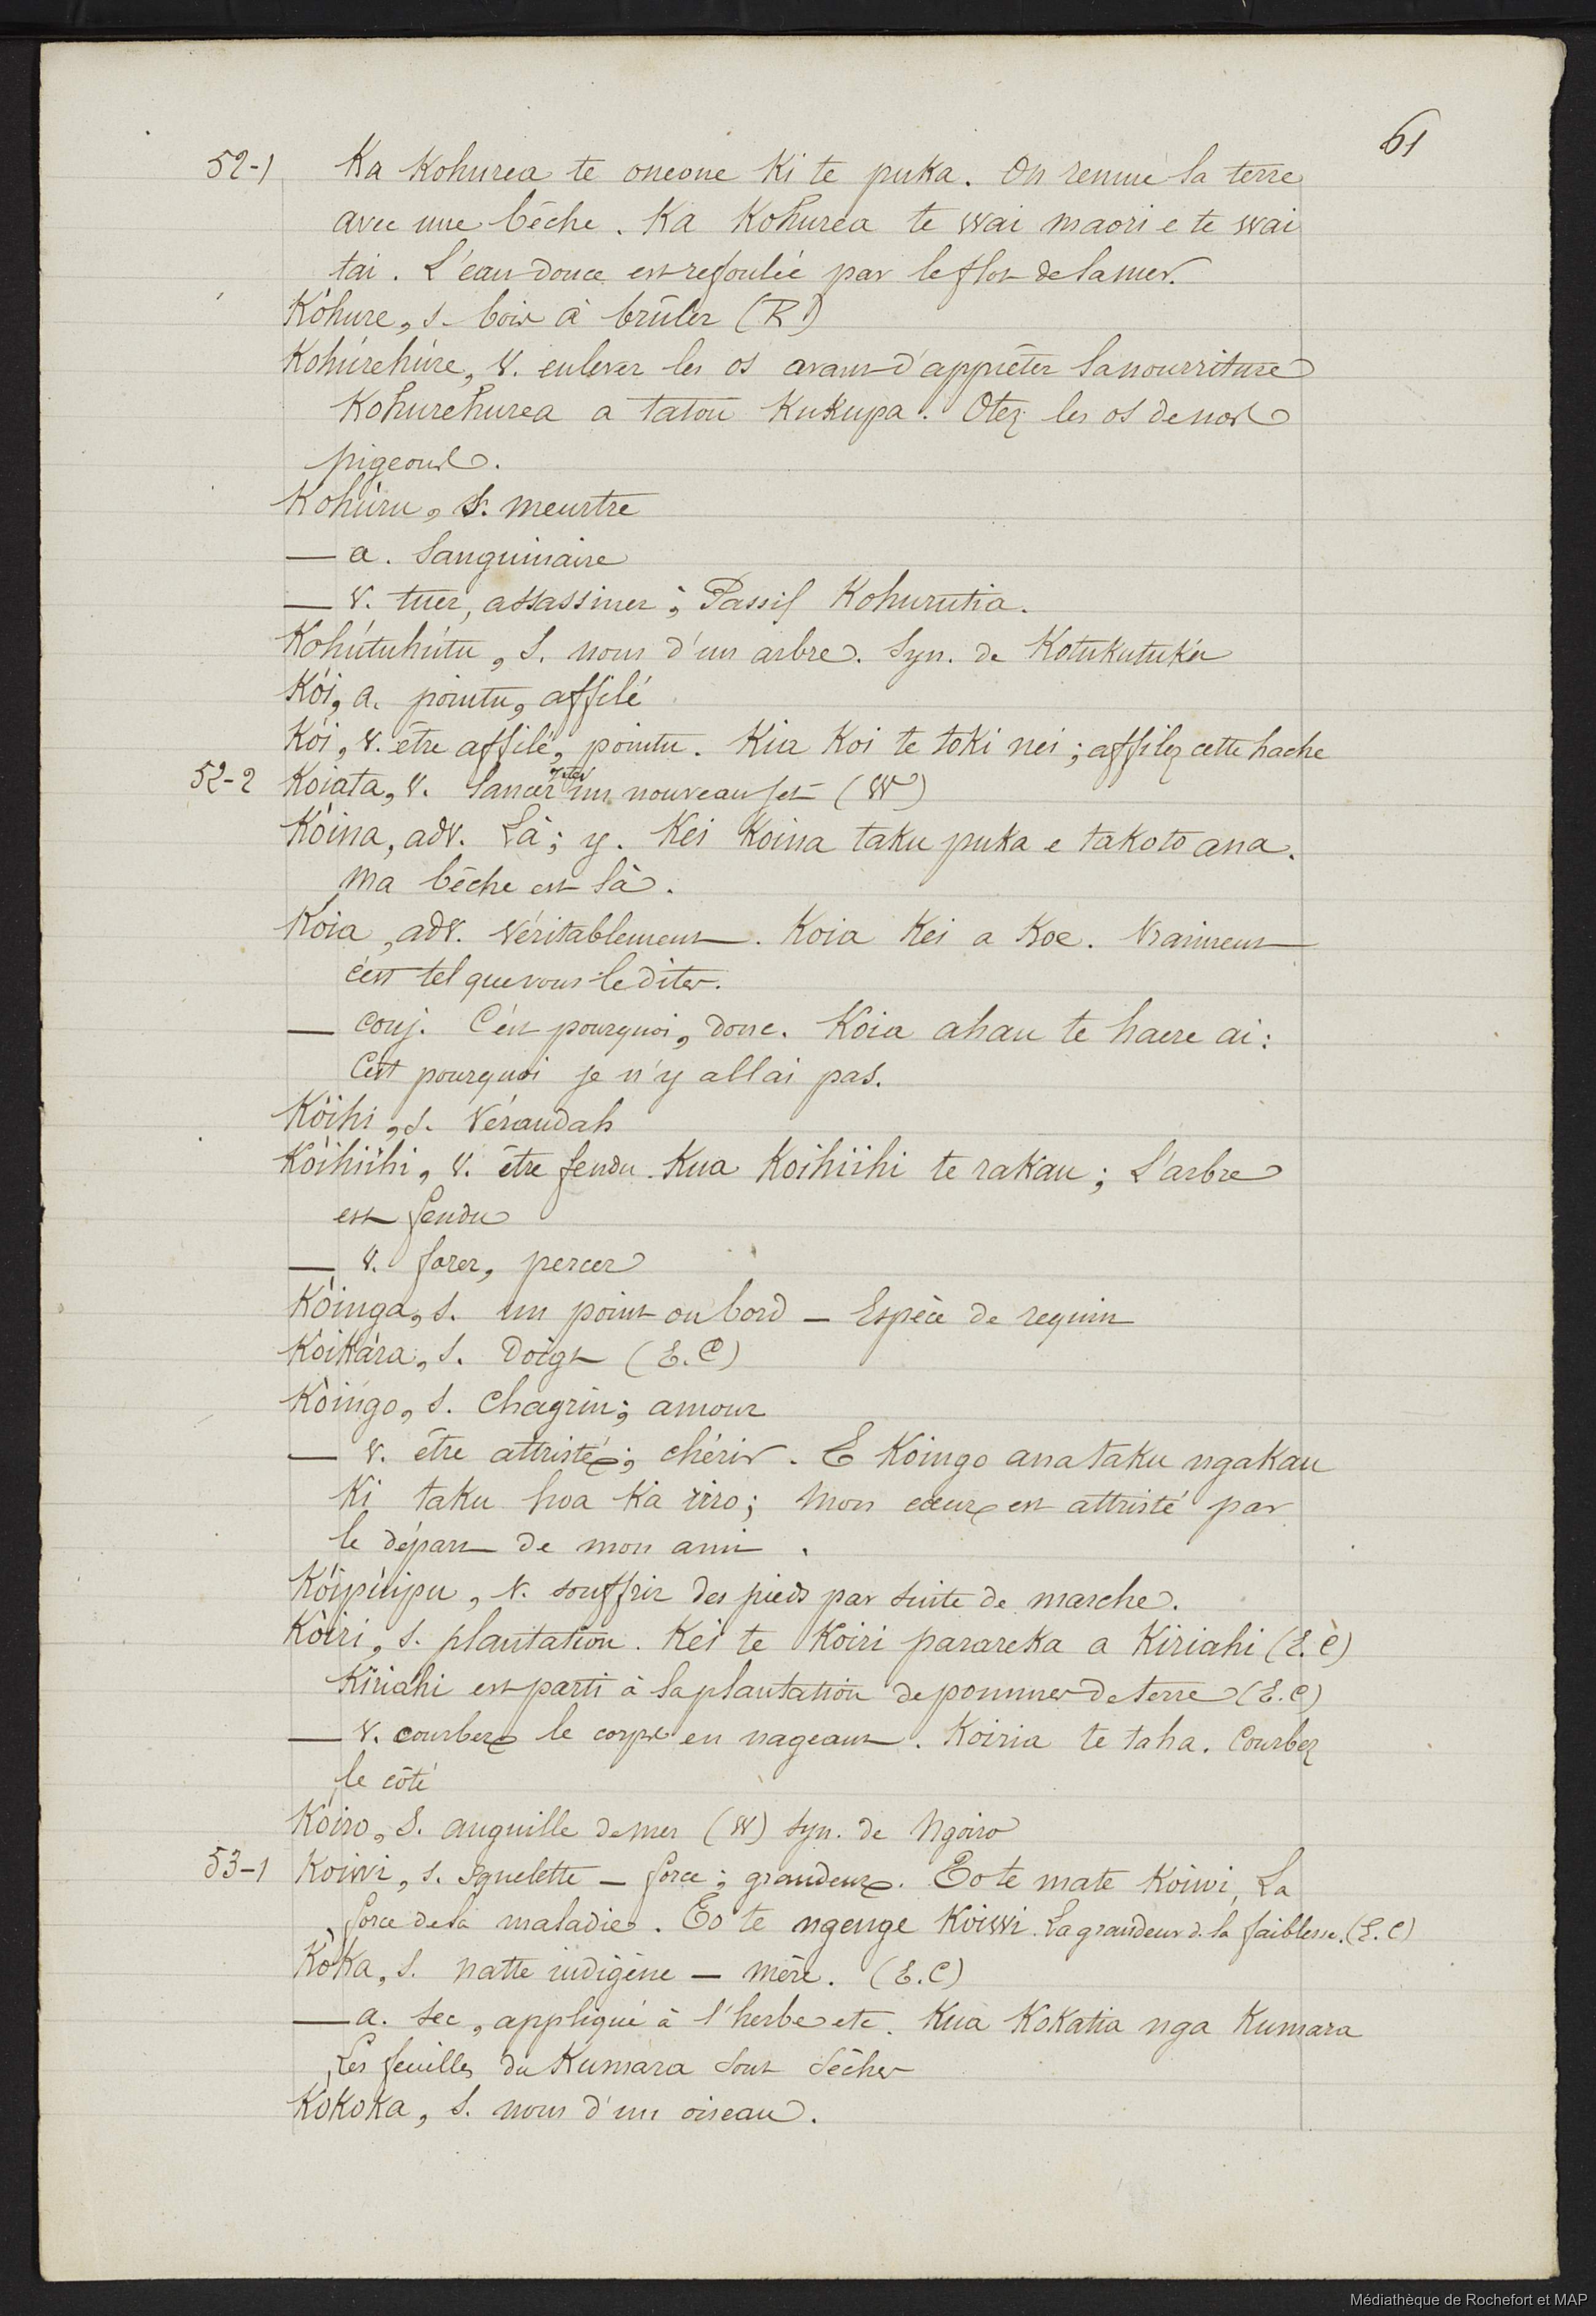 61
52-1 Ka Kohurea te oneone Ki te puka. On remue la terre
avec une bêche. Ka Kohurea te wai maori e te wai
tai. L'eau douce est refoulée par le flot de la mer.
Kòhure, s. bois à brûler (R)
Kohúrehúre, v. enlever les os avant d'apprêter la nourriture
Kohurehurea a tatou Kukupa. Otez les os de nos
pigeons.
Kohúru, s. meurtre
— a. Sanguinaire
— v. tuer, assassiner; Passif Kohurutia.
Kohútuhútu, s. nom d'un arbre. Syn. de Kotukutuku
Kói, a. pointu, affilé
Kói, v. être affilé, pointu. Kia Koi te toki nei; affilez cette hache
52-2 Koiata, v. Lancer un nouveau jet (W)
Kòina, adv. Là; y. Kei Koina taku puka e takoto ana.
Ma bêche est là.
Kòia, adv. Véritablement. Koia Kei a Koe. Vraiment
c'est tel que vous le dites.
— conj. C'est pourquoi, donc. Koia ahau te haere ai:
C'est pourquoi je n'y allai pas.
Kòihi, s. Vérandah
Kòihiihi, v. être fendu. Kua Koihiihi te rakau; L'arbre
est fendu
— v. forer, percer
Kòinga, s. un point ou bord — Espèce de requin
Koikára, s. Doigt (E.C)
Kòingo, s. Chagrin; amour
— v. être attristé; chérir. E Koingo ana taku ngakau
Ki taku hoa Ka riro; Mon cœur est attristé par
le départ de mon ami.
Kóipúipu, v. souffrir des pieds par suite de marche.
Kòiri, s. plantation. Kei te Koiri parareka a Kiriahi (E.C)
Kiriahi est parti à la plantation de pommes de terre (E.C)
— v. courber le corps en nageant. Koiria te taha. Courbez
le côté
Kòiro, s. anguille de mer (W) syn. de Ngoiro
53-1 Koiwi, s. squelette — force; grandeur. Eo te mate Koiwi, La
force de la maladie. Eo te ngenge Koiwi. La grandeur d. la faiblesse. (E.C)
Kòka, s. natte indigène — mère. (E.C)
— a. sec, appliqué à l'herbe etc. Kua Kokatia nga Kumara
Les feuilles du Kumara sont sèches
Kokoka, s. nom d'un oiseau.
Médiathèque de Rochefort et MAP